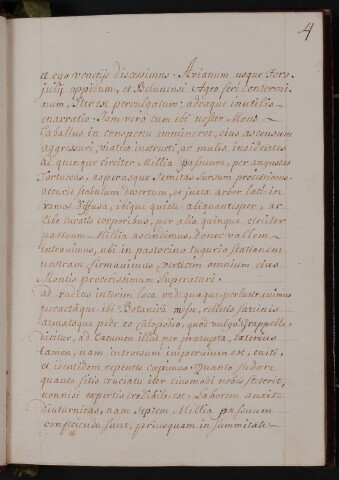 4
et ego venetijs discessimus. Avianum usque Foro
julij oppidum, et Bellunensi Agro ferè contermi
num, Iter est pervulgatum; adeoque inutilis
enarratio. Iam vero cum ibi noster Mons
Caballus in conspectu immineret, eius ascensum
aggressuri, viatico instructi, ac mulis insidentes
ad quinque circiter Millia passuum, per angustas
tortuosas, asperasque semitas sursum processimus
stabulum divertum, et juxta arbor late in
ramos diffusa, ibique quieti aliquantisper, ac
cibo curatis corporibus, per alia quinque circiter
passuum Millia ascendimus, donec vallem
intravimus, ubi in pastorino tugurio stationem
nostram firmavimus, verticem omnium eius
Montis procerissimum superaturi.
ad radices interim loca undequaque perlustravimus
peractaque ibi Botanica messe, relictis
armatoque pede eo calopodio, quod vulgo Grappelle
dicitur, ad Cacumen illud per prærupta latera
tamen, nam introrsum impervium est, eniti,
et identidem repentes cœpimus. Quanto sudore
quanto sitis cruciatu iter eiusmodi nobis steterit,
nonnisi expertis credibile est. Laborem auxit
diuturnitas, nam septem Millia passuum
conficienda sunt, priusquam in summitate